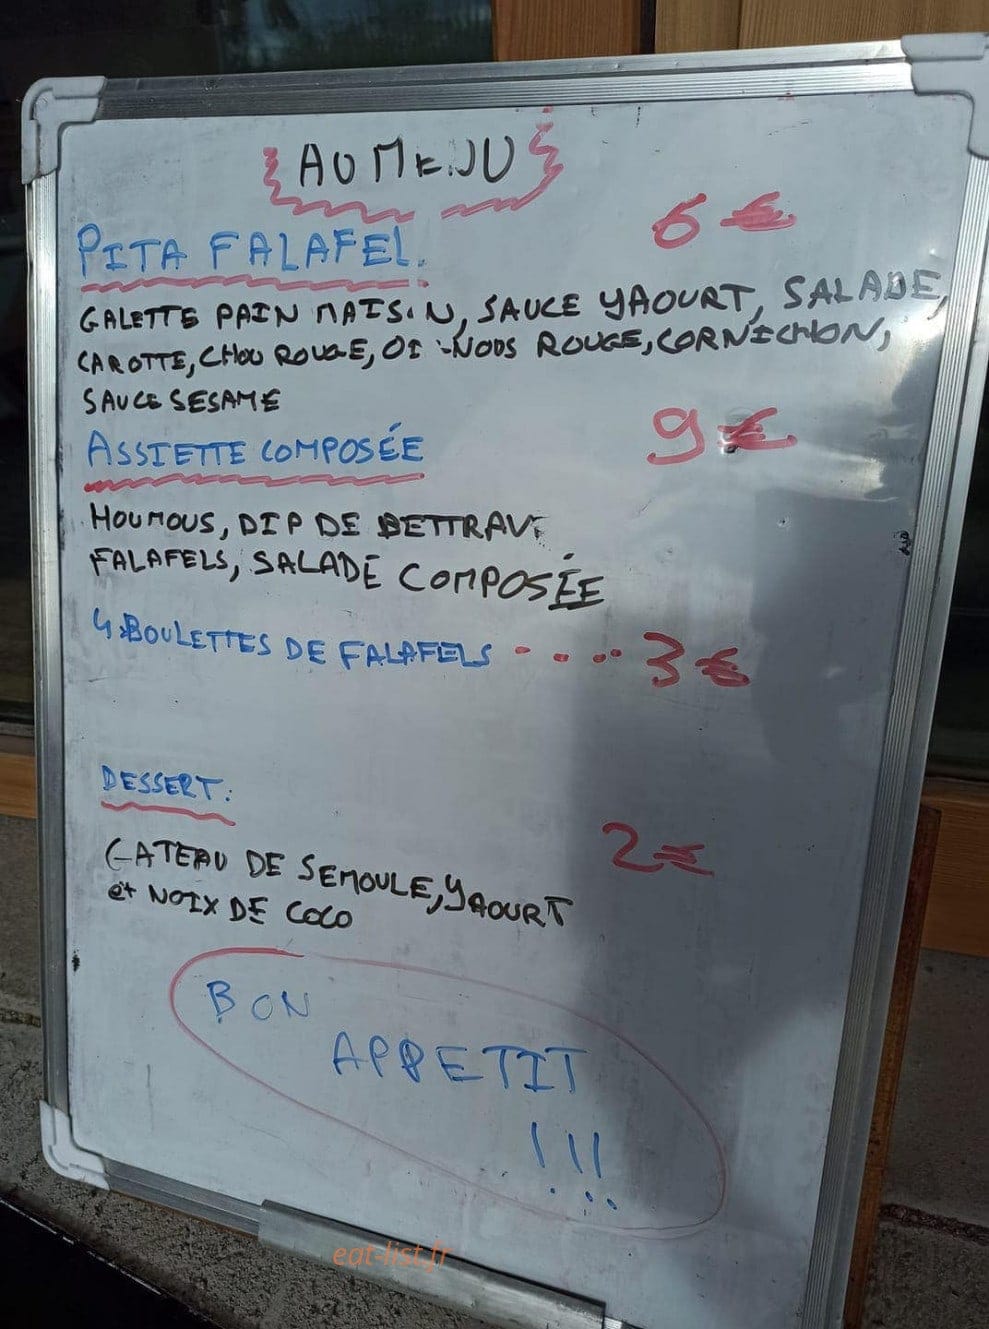 AU MENU
PITA FALAFEL. 6€
GALETTE PAIN MAISON, SAUCE YAOURT, SALADE,
CAROTTE, CHOU ROUGE, OIGNONS ROUGE, CORNICHON,
SAUCE SESAME
ASSIETTE COMPOSÉE 9€
HOUMOUS, DIP DE BETTRAVE
FALAFELS, SALADE COMPOSÉE
4 BOULETTES DE FALAFELS .... 3€
DESSERT:
GATEAU DE SEMOULE, YAOURT 2€
et NOIX DE COCO
BON
APPETIT
!!!
eat-list.fr